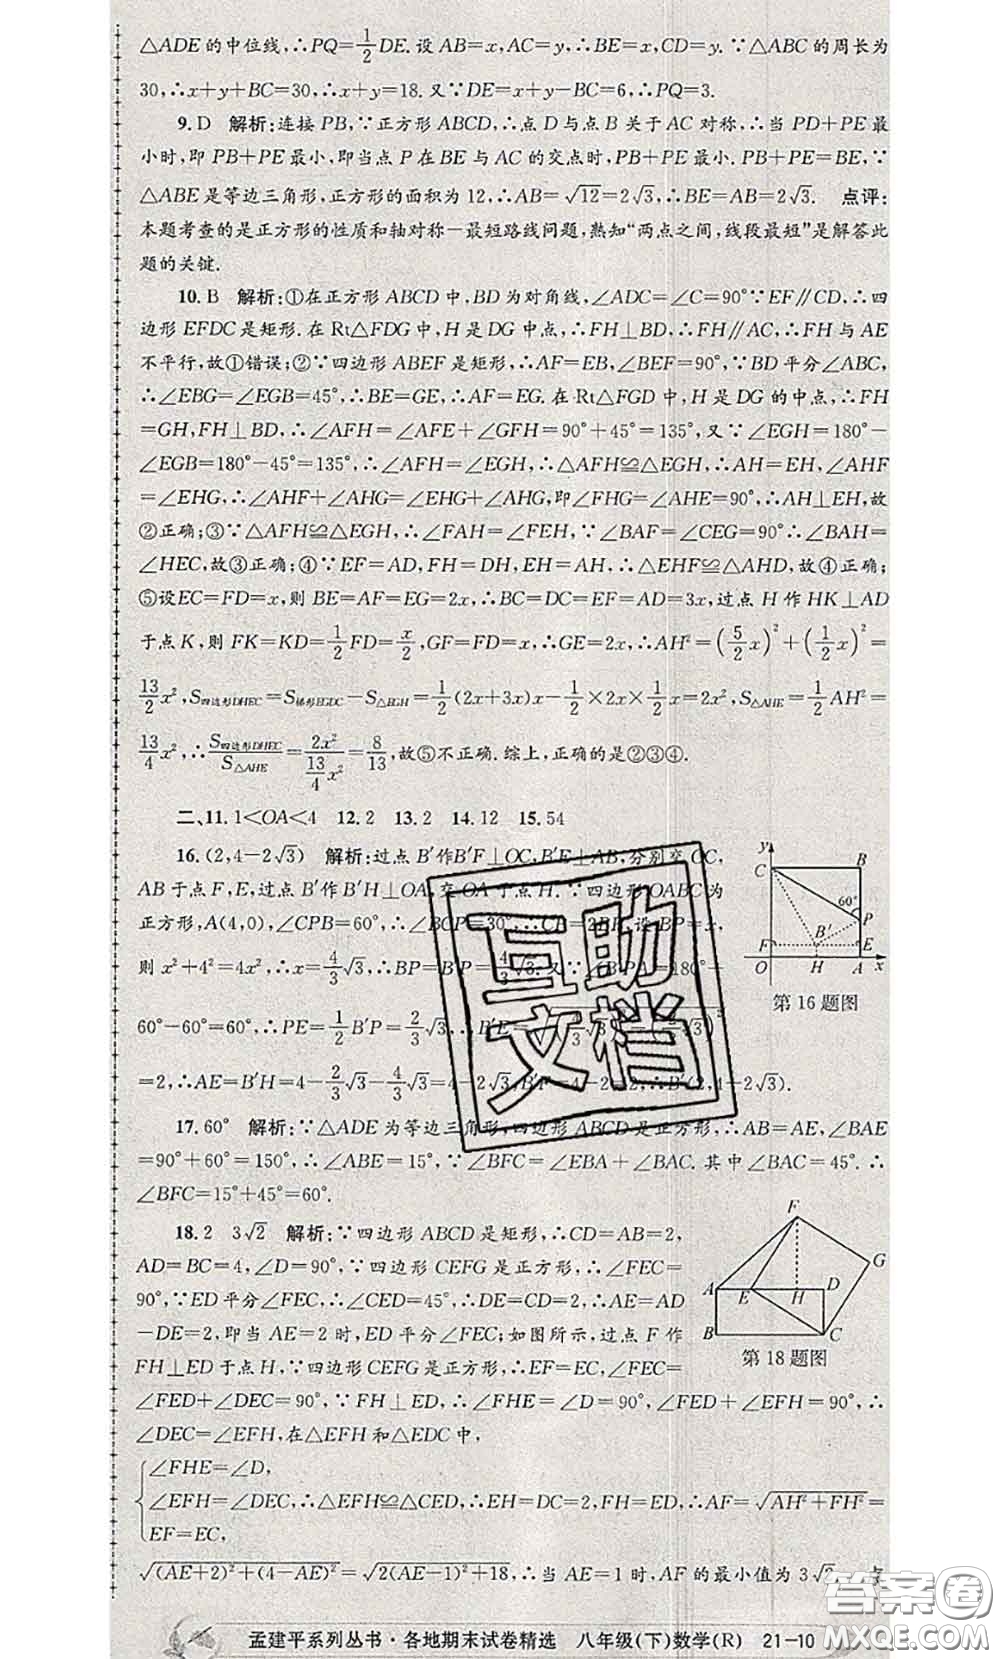 △ADE的中位线,∴PQ=1/2DE.设AB=x,AC=y,∴BE=x,CD=y.∵△ABC的周长为
30,∴x+y+BC=30,∴x+y=18.又∵DE=x+y-BC=6,∴PQ=3.
9.D 解析:连接PB,∵正方形ABCD,∴点D与点B关于AC对称,∴当PD+PE最
小时,即PB+PE最小,即当点P在BE与AC的交点时,PB+PE最小.PB+PE=BE,∵
△ABE是等边三角形,正方形的面积为12,∴AB=√12=2√3,∴BE=AB=2√3. 点评:
本题考查的是正方形的性质和轴对称—最短路线问题,熟知“两点之间,线段最短”是解答此
题的关键.
10.B 解析:①在正方形ABCD中,BD为对角线,∠ADC=∠C=90°∵EF∥CD,∴四
边形EFDC是矩形.在Rt△FDG中,H是DG中点,∴FH⊥BD,∴FH∥AC,∴FH与AE
不平行,故①错误;②∵四边形ABEF是矩形,∴AF=EB,∠BEF=90°,∵BD平分∠ABC,
∴∠EBG=∠EGB=45°,∴BE=GE,∴AF=EG.在Rt△FGD中,H是DG的中点,∴FH
=GH,FH⊥BD,∴∠AFH=∠AFE+∠GFH=90°+45°=135°,又∵∠EGH=180°-
∠EGB=180°-45°=135°,∴∠AFH=∠EGH,∴△AFH≌△EGH,∴AH=EH,∠AHF
=∠EHG,∴∠AHF+∠AHG=∠EHG+∠AHG,即∠FHG=∠AHE=90°,∴AH⊥EH,故
②正确;③∵△AFH≌△EGH,∴∠FAH=∠FEH,∵∠BAF=∠CEG=90°∴∠BAH=
∠HEC,故③正确;④∵EF=AD,FH=DH,EH=AH,∴△EHF≌△AHD,故④正确;
⑤设EC=FD=x,则BE=AF=EG=2x,∴BC=DC=EF=AD=3x,过点H作HK⊥AD
于点K,则FK=KD=1/2FD=x/2,GF=FD=x,∴GE=2x,∴AH²=(5/2x)²+(1/2x)²=
13/2x²,S四边形DHEC=S梯形EGDC-S△EGH=1/2(2x+3x)x-1/2×2x×1/2x=2x²,S△AHE=1/2AH²=
13/4x²,∴S四边形DHEC/S△AHE=2x²/(13/4x²)=8/13,故⑤不正确.综上,正确的是②③④.
二、11.1<OA<4 12.2 13.2 14.12 15.54
16.(2,4-2√3) 解析:过点B′作B′F⊥OC,B′E⊥AB,分别交OC,
AB于点F,E,过点B′作B′H⊥OA,交OA于点H.∵四边形OABC为
正方形,A(4,0),∠CPB=60°,∴∠BCP=30°,∴CP=2BP,设BP=x,
则x²+4²=4x²,∴x=4/3√3,∴BP=B′P=4/3√3.又∵∠B′PA=180°-
60°-60°=60°,∴PE=1/2B′P=2/3√3,
=2,∴AE=B′H=4-2/3√3-4/3√3=4-2√3,B′F=4-2=2,∴B′(2,4-2√3).
y
C
B
60°
P
B′
F
E
O
H
A
x
第16题图
17.60° 解析:∵△ADE为等边三角形,四边形ABCD是正方形,∴AB=AE,∠BAE
=90°+60°=150°,∴∠ABE=15°,∵∠BFC=∠EBA+∠BAC.其中∠BAC=45°.∴
∠BFC=15°+45°=60°.
18.2 3√2 解析:∵四边形ABCD是矩形,∴CD=AB=2,
AD=BC=4,∠D=90°,∵四边形CEFG是正方形,∴∠FEC=
90°,∵ED平分∠FEC,∴∠CED=45°,∴DE=CD=2,∴AE=AD
-DE=2,即当AE=2时,ED平分∠FEC;如图所示,过点F作
FH⊥ED于点H,∵四边形CEFG是正方形,∴EF=EC,∠FEC=
∠FED+∠DEC=90°,∵FH⊥ED,∴∠FHE=∠D=90°,∴∠FED+∠EFH=90°,∴
∠DEC=∠EFH,在△EFH和△EDC中,
F
G
A
E
H
D
B
C
第18题图
∠FHE=∠D,
∠EFH=∠DEC,∴△EFH≌△CED,∴EH=DC=2,FH=ED,∴AF=√AH²+FH²=
EF=EC,
√(AE+2)²+(4-AE)²=√2(AE-1)²+18,∴当AE=1时,AF的最小值为3√2. 点
孟建平系列丛书·各地期末试卷精选 八年级(下)数学(R) 21-10
互助
文档
答案圈
MXQE.COM